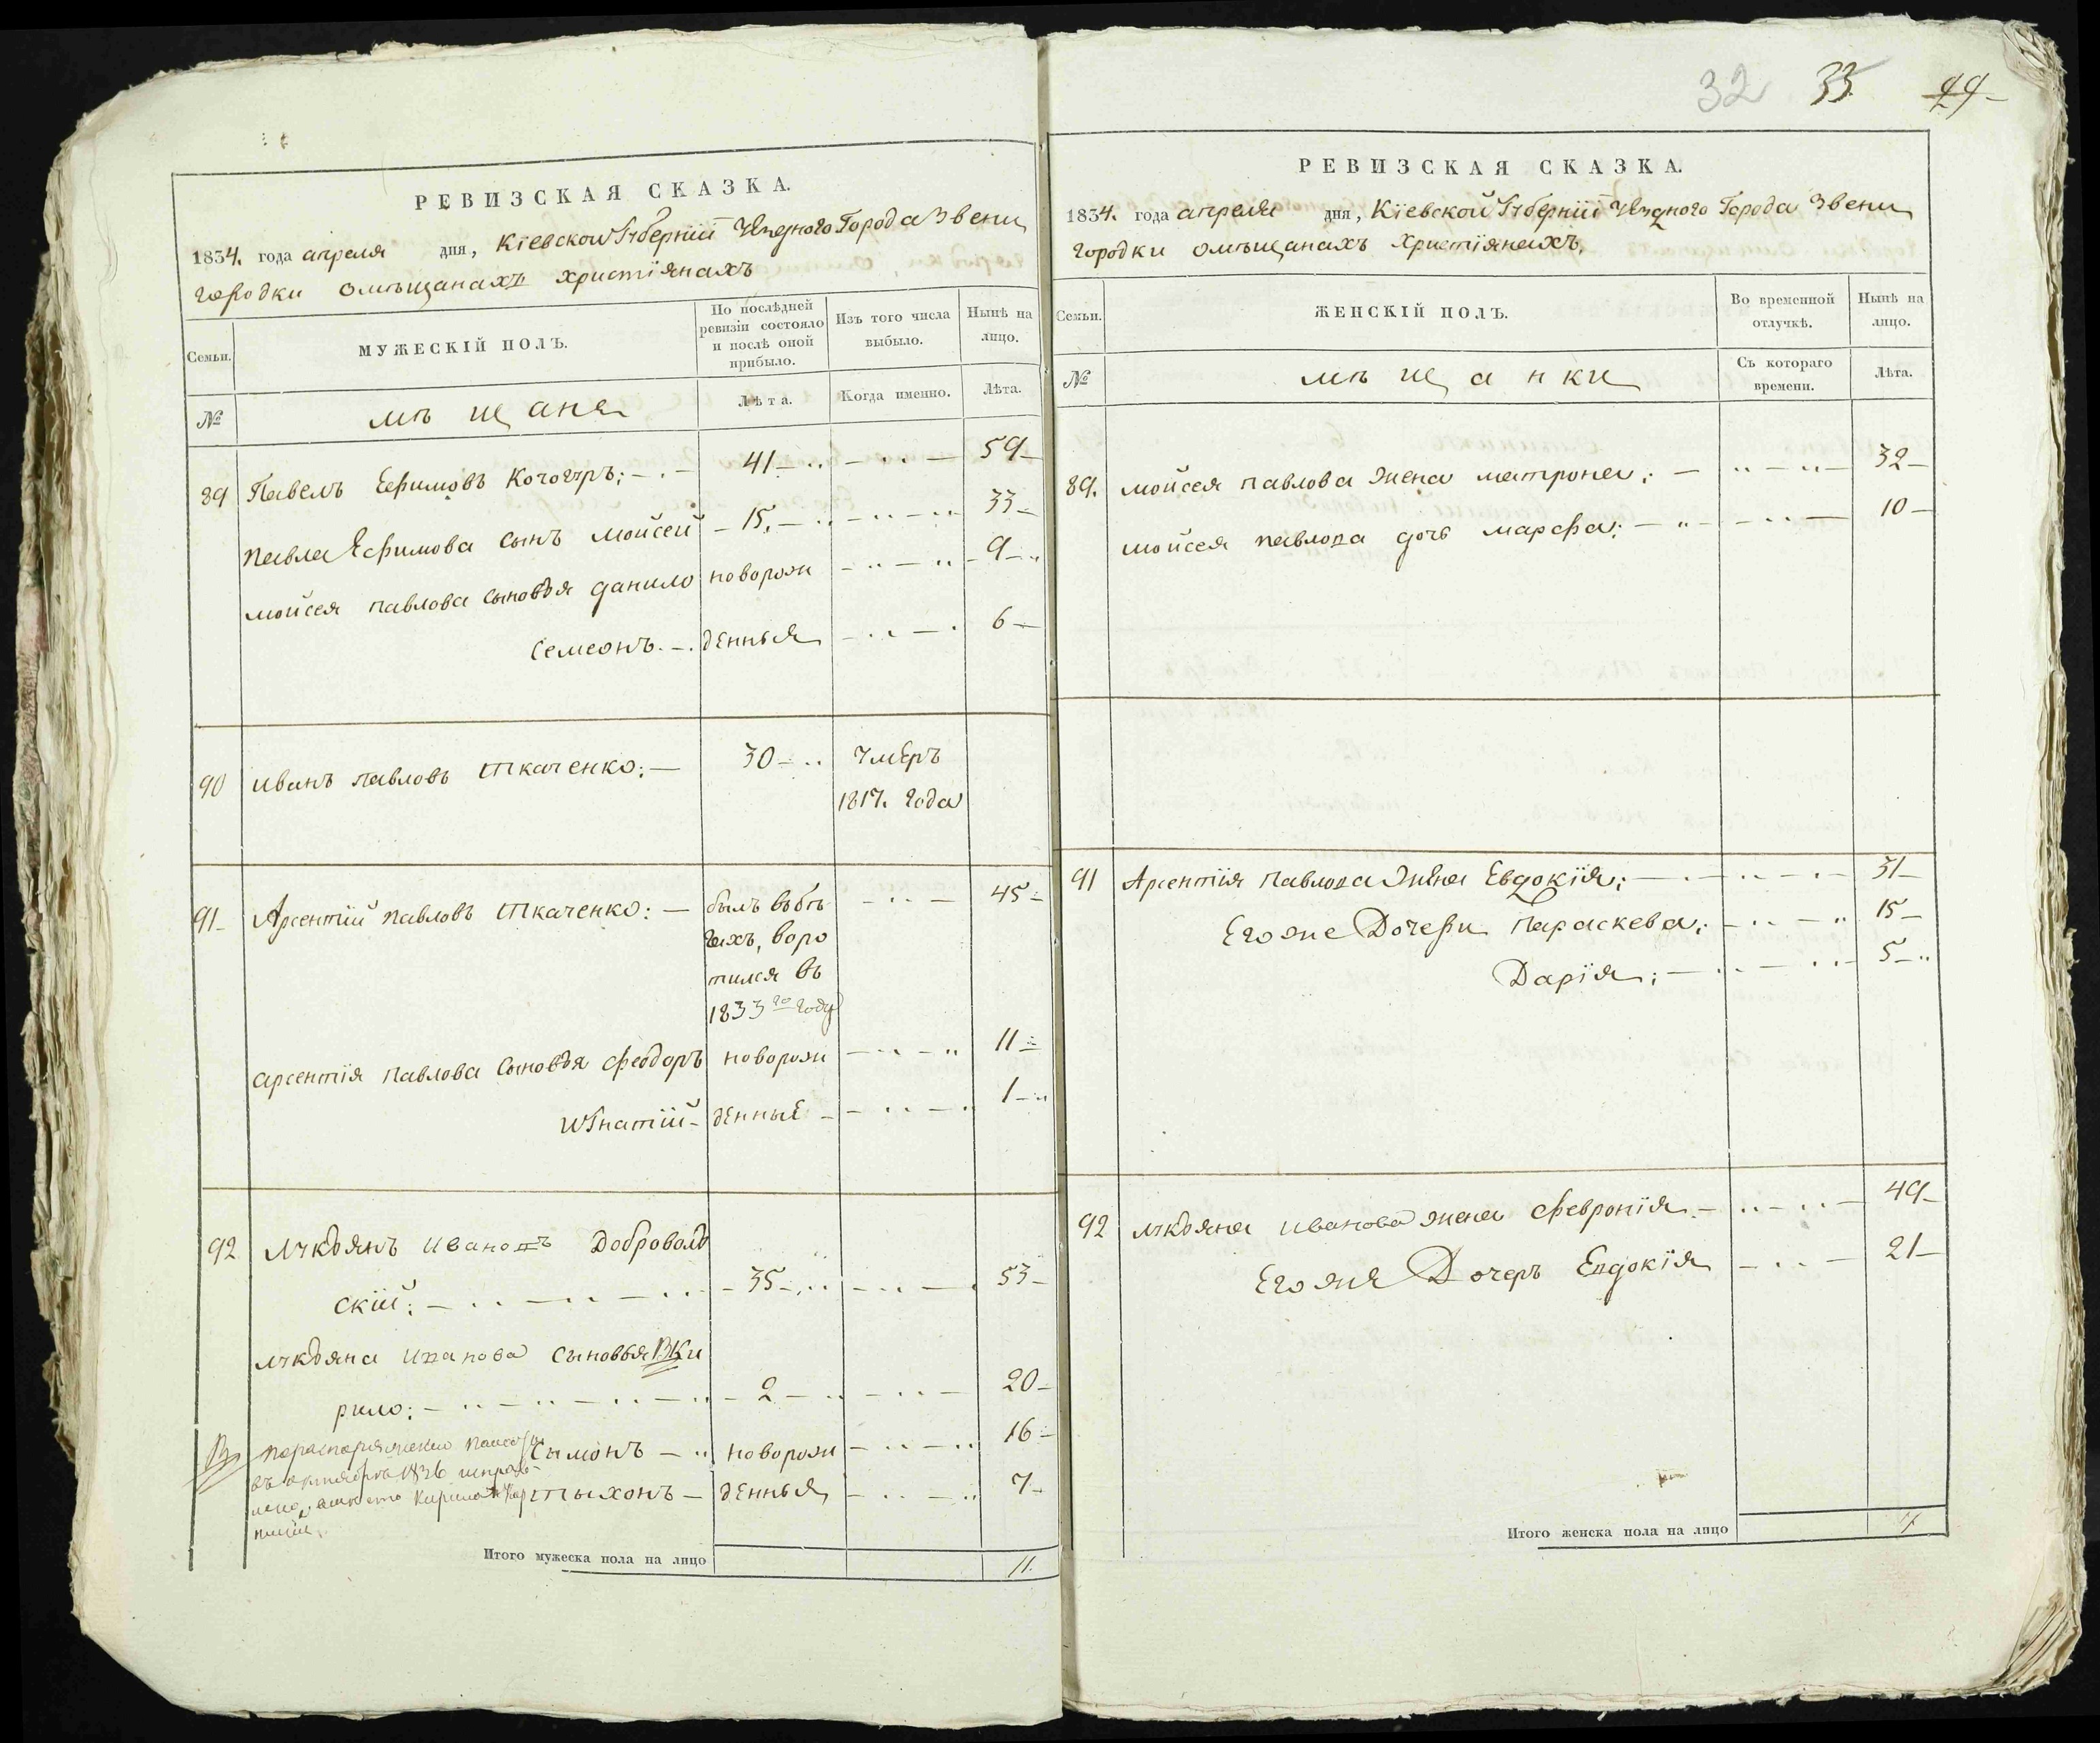 РЕВИЗСКАЯ СКАЗКА.
1834. года апреля дня, Кіевской Губерніи Уезднаго Города Звени
городки омѣщанахъ христіянахъ
Семьи.
МУЖЕСКІЙ ПОЛЪ.
По послѣдней
ревизіи состояло
и послѣ оной
прибыло.
Изъ того числа
выбыло.
Нынѣ на
лицо.
№
мѣщане
Лѣта.
Когда именно.
Лѣта.
89 Павелъ Ефимовъ 41 59
Павла Ефимова сынъ Мойсей 15. 33
Мойсея Павлова сыновья Данило новорож 9
Семеонъ. денныя 6
90 Иванъ Павловъ Ткаченко; 30 умеръ
1817. года
91 Арсентій Павловъ Ткаченко: былъ вбѣ 45
гахъ, воро
тился въ
1833го году
Арсентія Павлова сыновья Феодоръ новорож 11
Игнатій денные 1
92 Лукьянъ Ивановъ Доброволь
скій: 35 53
Лукьяна Иванова сыновья Ки
рило: 2 20
Сымонъ новорож 16
Тыхонъ денныя 7
въ октября 1836
вместо Кирила
Итого мужеска пола на лицо 11.
32 33 49
РЕВИЗСКАЯ СКАЗКА.
1834. года апреля дня, Кіевской Губерніи Уезднаго Города Звени
городки омѣщанахъ Христіянахъ.
Семьи.
ЖЕНСКІЙ ПОЛЪ.
Во временной
отлучкѣ.
Нынѣ на
лицо.
№
мѣщанки
Съ котораго
времени.
Лѣта.
89. Мойсея Павлова жена Матрона; 32
Мойсея Павлова дочь Марфа; 10
91 Арсентія Павлова жена Евдокія; 31
Егоже Дочери Параскева; 15
Дарія; 5
92 Лукьяна Иванова жена Февронія 49
Егоже Дочеръ Евдокія 21
Итого женска пола на лицо 7